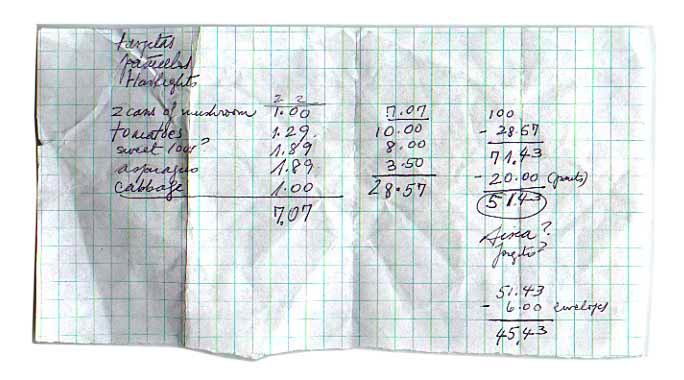 2 2
2 cans of mushroom 1.00
tomatoes 1.29
sweet ? 1.89
asparagus 1.89
cabbage 1.00
7,07
7.07
10.00
8.00
3.50
28.57
100
- 28.57
71.43
- 20.00
51.43
51.43
- 6.00 envelops
45,43